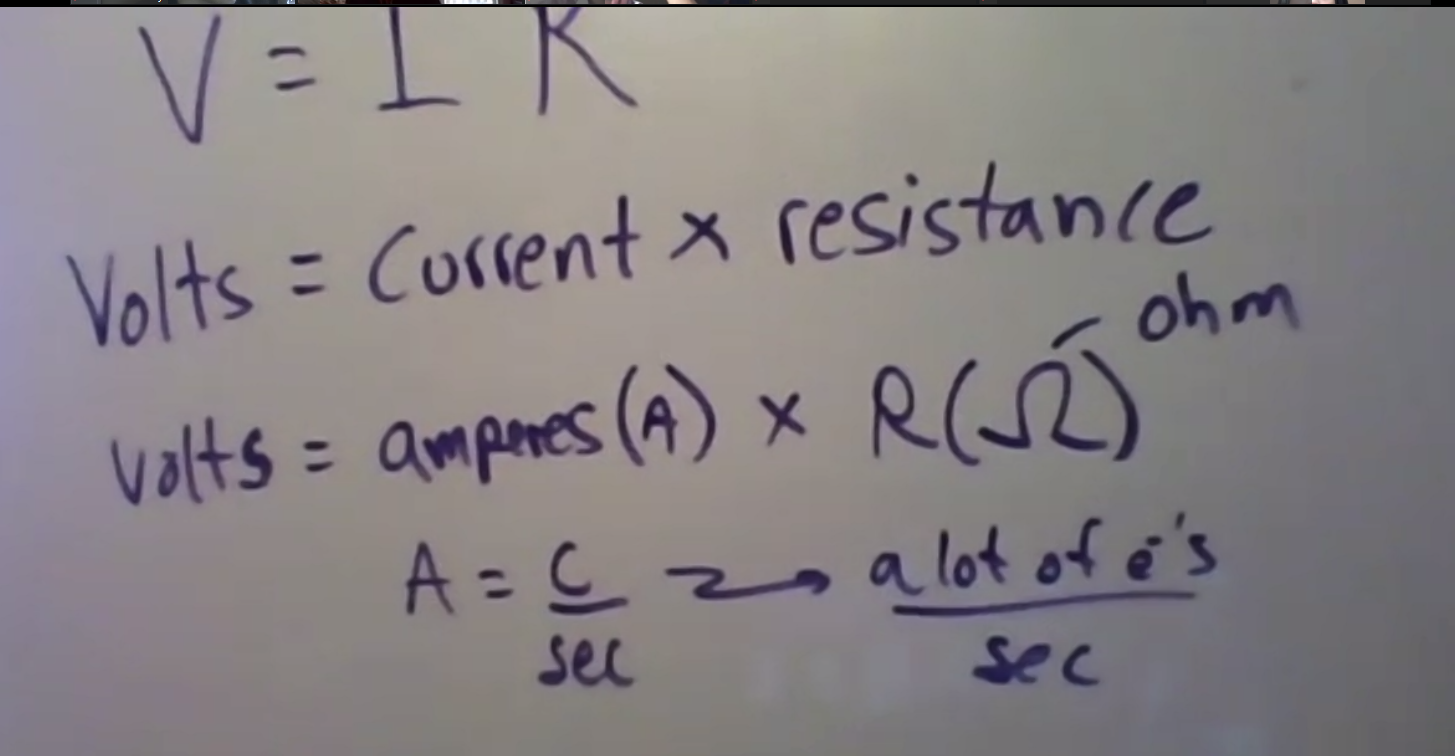 V = I R
Volts = Current x resistance
ohm
volts = amperes (A) x R (Ω)
A = C/sec → a lot of e⁻'s/sec